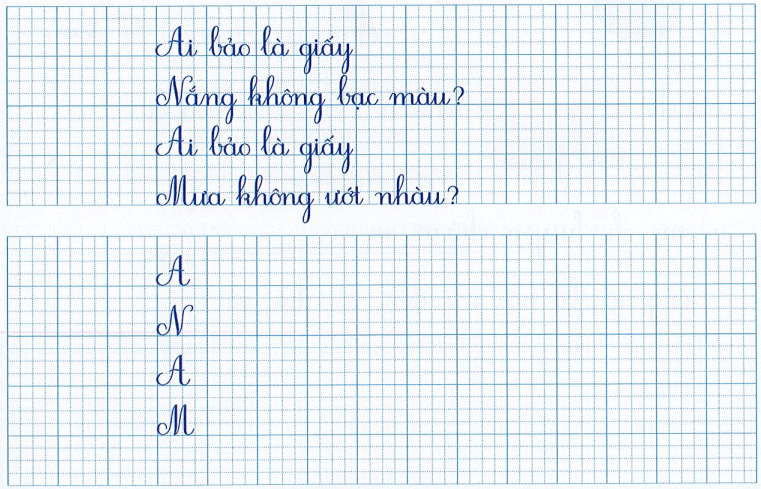 Ai bảo là giấy
Nắng không bạc màu?
Ai bảo là giấy
Mưa không ướt nhàu?
A
N
A
M